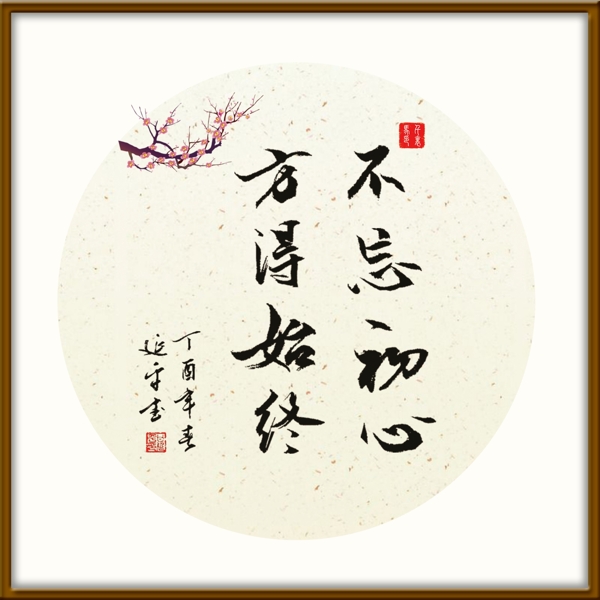 不忘初心
方得始终
丁酉年春
延平书